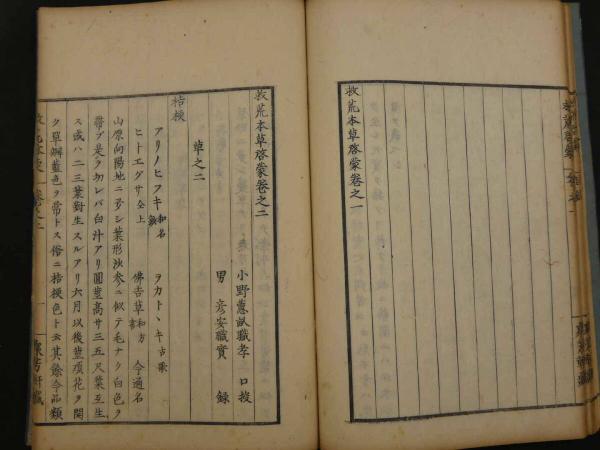 救荒本草啓蒙卷之一
救荒本草啓蒙卷之二
小野蕙畝職孝 口授
男 彦安職實 録
草之二
桔梗
アリノヒフキ 和名鈔 ヲカトヽキ 古歌
ヒトエグサ 仝上 佛吉草 和方書 今通名
山原向陽地ニ多シ葉形沙参ニ似テ毛ナク白色ヲ
帶ブ是ヲ切レバ白汁アリ圓莖高サ三五尺葉互生
ス或ハ二三葉對生スルアリ六月以後莖頂花ヲ開
ク草瓣藍色ヲ帶トス俗ニ桔梗色ト云其餘今品類